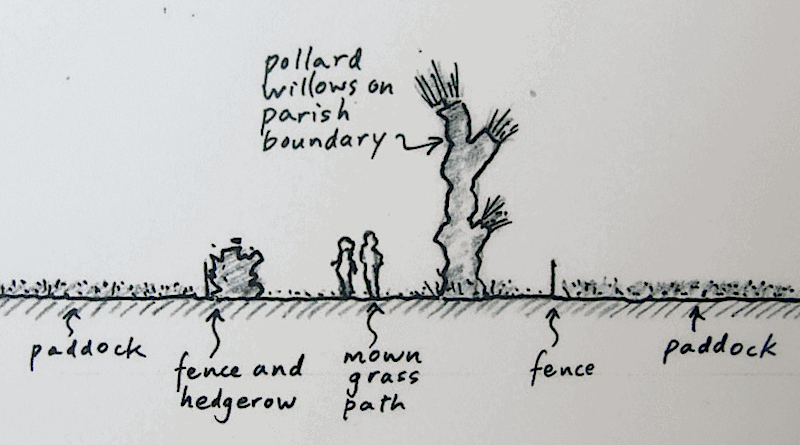 pollard
willows on
parish
boundary
paddock
fence and
hedgerow
mown
grass
path
fence
paddock